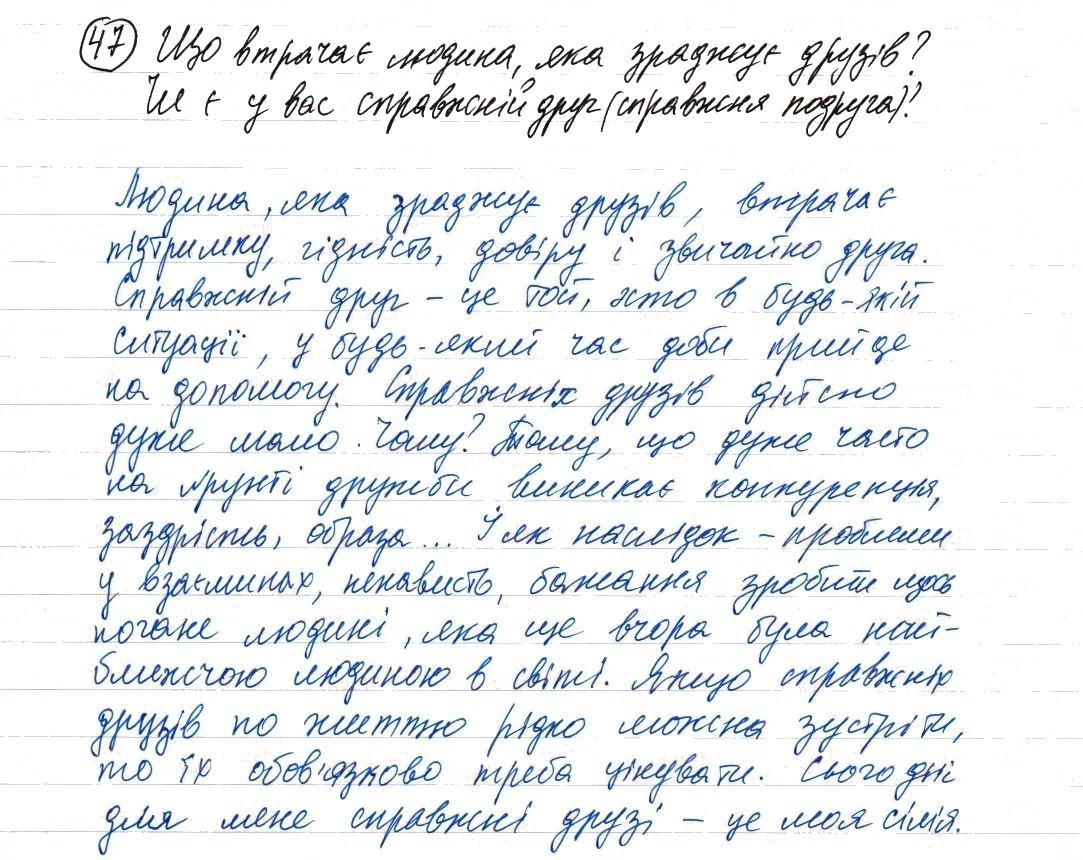 47 Що втрачає людина, яка зраджує друзів?
Чи є у вас справжній друг (справжня подруга)?
Людина, яка зраджує друзів, втрачає
підтримку, гідність, довіру і звичайно друга.
Справжній друг – це той, хто в будь-якій
ситуації, у будь-який час доби прийде
на допомогу. Справжніх друзів дійсно
дуже мало. Чому? Тому, що дуже часто
на ґрунті дружби виникає конкуренція,
заздрість, образа... І як наслідок – проблеми
у взаєминах, ненависть, бажання зробити щось
погане людині, яка ще вчора була най-
ближчою людиною в світі. Якщо справжніх
друзів по життю рідко можна зустріти,
то їх обов'язково треба цінувати. Сьогодні
для мене справжні друзі – це моя сімія.